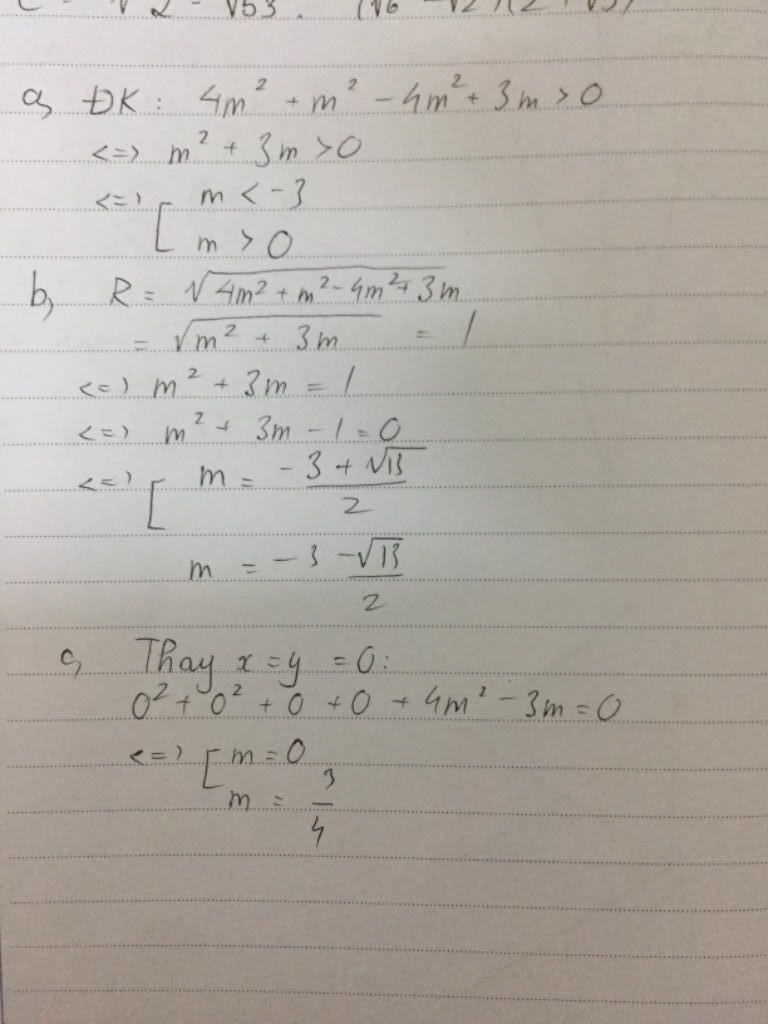 a, ĐK: 4m² + m² - 4m² + 3m > 0
<=> m² + 3m > 0
<=> [ m < -3
m > 0
b, R = √(4m² + m² - 4m² + 3m)
= √(m² + 3m) = 1
<=> m² + 3m = 1
<=> m² + 3m - 1 = 0
<=> [ m = (-3 + √13)/2
m = (-3 - √13)/2
c, Thay x = y = 0:
0² + 0² + 0 + 0 + 4m² - 3m = 0
<=> [ m = 0
m = 3/4